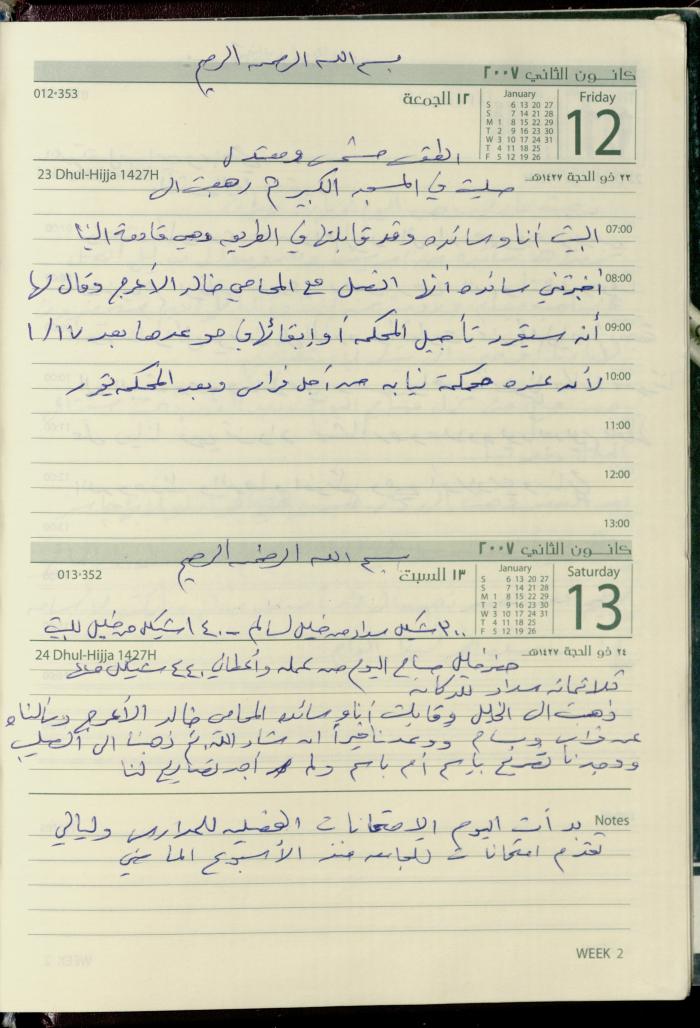 بسم الله الرحمن الرحيم
كانون الثاني ٢٠٠٧
012-353
١٢ الجمعة
January
S 6 13 20 27
S 7 14 21 28
M 1 8 15 22 29
T 2 9 16 23 30
W 3 10 17 24 31
T 4 11 18 25
F 5 12 19 26
Friday
12
الطقس مشمس ومعتدل
23 Dhul-Hijja 1427H
٢٣ ذو الحجة ١٤٢٧هـ
صليت في المسجد الكبير ثم رجعت الى
07:00 البيت أنا وسائده وقد قابلتها في الطريق وهي قادمة الينا
08:00 أخبرتني سائده أنها اتصل مع المحامي خالد الأعرج وقال لها
09:00 أنه سيقرر تأجيل المحكمه أو إبقائها في موعدها بعد ١/١٧
10:00 لأنه عنده محكمة نيابه من أجل فراس وبعد المحكمه يقرر
11:00
12:00
13:00
بسم الله الرحمن الرحيم
كانون الثاني ٢٠٠٧
013-352
١٣ السبت
January
S 6 13 20 27
S 7 14 21 28
M 1 8 15 22 29
T 2 9 16 23 30
W 3 10 17 24 31
T 4 11 18 25
F 5 12 19 26
Saturday
13
٣٠٠ شيكل سداد من خليل لسالم - ١٤٠ شيكل من خليل للبيت
24 Dhul-Hijja 1427H
٢٤ ذو الحجة ١٤٢٧هـ
حضر خليل صباح اليوم من عمله وأعطاني ٤٤٠ شيكل منها
ثلاثمائه سداد للدكانه
ذهبت الى الخليل وقابلت أنا وسائده المحامي خالد الأعرج وسألناه
عن فراس وبسام ووعدنا خيراً ان شاء الله ثم ذهبنا الى الصليب
ووجدنا تصريح باسم أم باسم ولم أجد تصاريح لنا
Notes بدأت اليوم الامتحانات الفصليه للمدارس وليالي
تقدم امتحانات للجامعه منذ الأسبوع الماضي
WEEK 2